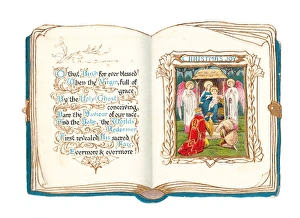 O that Birth for ever blessed
When the Virgin, full of
grace,
By the Holy Ghost
conceiving,
Bare the Saviour of our race
And the Babe, the World's
Redeemer,
First revealed His sacred
Face,
Evermore & evermore!
CHRISTMAS JOY